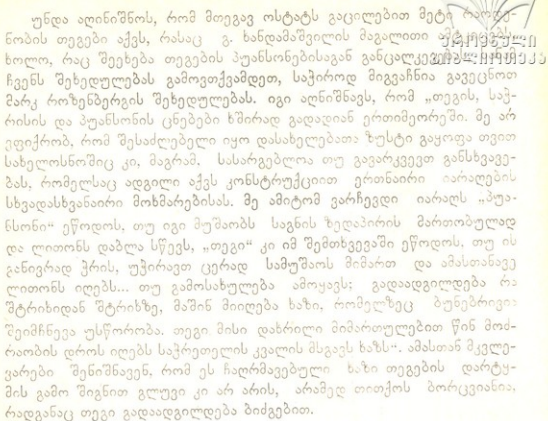 უნდა აღინიშნოს, რომ მოჭედავ ოსტატს გაცილებით მეტი რაოდე-
ნობის თეგები აქვს, რასაც გ. ხანდამაშვილის მაგალითი
ხოლო, რაც შეეხება თეგების პუანსონებისაგან განცალკევებას
ჩვენს შეხედულებას გამოვთქვამდეთ, საჭიროდ მიგვაჩნია გავეცნოთ
მარკ როზენბერგის შეხედულებას. იგი აღნიშნავს, რომ „თეგის, საჭ-
რისის და პუანსონის ცნებები ხშირად გადადიან ერთიმეორეში. მე არ
ვფიქრობ, რომ შესაძლებელი იყო დასახელებათა ზუსტი გაყოფა თვით
სახელოსნოშიც კი, მაგრამ. სასარგებლოა თუ გავარკვევთ განსხვავე-
ბას, რომელსაც ადგილი აქვს კონსტრუქციით ერთნაირი იარაღების
სხვადასხვანაირი მოხმარებისას. მე ამიტომ ვარჩევდი იარაღს „პუა-
ნსონი“ ეწოდოს, თუ იგი მუშაობს საგნის ზედაპირის მართობულად
და ლითონს დაბლა სწევს, „თეგი“ კი იმ შემთხვევაში ეწოდოს, თუ ის
განივრად ჭრის, უჭირავთ ცერად სამუშაოს მიმართ და ამასთანავე
ლითონს იღებს... თუ გამოსახულება ამოყავს; გადაადგილდება რა
შტრიხიდან შტრიხზე, მაშინ მიიღება ხაზი, რომელზეც ბუნებრივია
შეიმჩნევა უსწორობა. თეგი მისი დახრილი მიმართულებით წინ მოძ-
რაობის დროს იღებს საჭრეთელის კვალის მსგავს ხაზს“. ამასთან მკვლე-
ვარები შენიშნავენ, რომ ეს ჩაღრმავებული ხაზი თეგების დარტყ-
მის გამო შიგნით გლუვი კი არ არის, არამედ თითქოს ბორცვიანია,
რადგანაც თეგი გადაადგილდება ბიძგებით.
ეროვნული
ბიბლიოთეკა